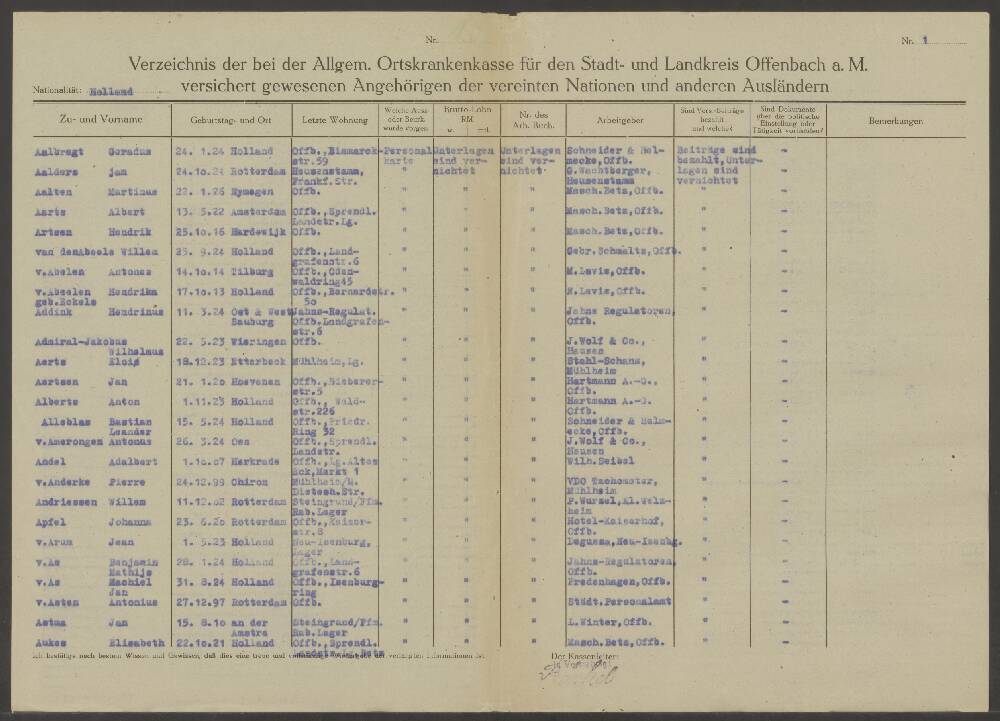 Nr.
Nr. 1
Verzeichnis der bei der Allgem. Ortskrankenkasse für den Stadt- und Landkreis Offenbach a. M.
Nationalität: Holland versichert gewesenen Angehörigen der vereinten Nationen und anderen Ausländern
Zu- und Vorname Geburtstag- und Ort Letzte Wohnung Welche Ausw. oder Bezirk wurde vorgen. Brutto-Lohn RM. Nr. des Arb. Buch. Arbeitgeber Sind Vers.-Beiträge bezahlt und welche? Sind Dokumente über die politische Einstellung oder Tätigkeit vorhanden? Bemerkungen
Aalbregt Geradus 24. 1.24 Holland Offb.,Bismarck- Personal Unterlagen Unterlagen Schneider & Hel- Beiträge sind -
str.59 karte sind ver- sind ver- mecke,Offb. bezahlt,Unter-
Aalders Jan 24.10.24 Rotterdam Heusenstamm, " nichtet nichtet G.Wachtberger, lagen sind -
Frankf.Str. Heusenstamm vernichtet
Aalten Martinus 22. 1.26 Nymegen Offb. " " " Masch.Betz,Offb. " -
Aarts Albert 13. 5.22 Amsterdam Offb.,Sprendl. " " " Masch.Betz,Offb. " -
Landstr.Lg.
Artsen Hendrik 25.10.16 Hardewijk Offb. " " " Masch.Betz,Offb. " -
van denAbeele Willem 25. 9.24 Holland Offb.,Land- " " " Gebr.Schmaltz,Offb. " -
grafenstr.6
v.Abelen Antonus 14.10.14 Tilburg Offb.,Oden- " " " M.Lavis,Offb. " -
waldring45
v.Abeelen Hendrika 17.10.13 Holland Offb.,Bernardstr. " " " M.Lavis,Offb. " -
geb.Eckels 50
Addink Hendrinus 11. 3.24 Ost & West Jahns-Regulat. " " " Jahns Regulatoren, " -
Bauburg Offb.Landgrafen- Offb.
str.6
Admiral-Jakobus 22. 5.23 Wieringen Offb. " " " J.Wolf & Co., " -
Wilhelmus Hausen
Aerts Elois 18.12.23 Etterbeck Mühlheim,Lg. " " " Stahl-Schanz, " -
Mühlheim
Aertsen Jan 21. 1.20 Hoevenen Offb.,Bieberer- " " " Hartmann A.-G., " -
str.5 Offb.
Alberts Anton 1.11.23 Holland Offb., Wald- " " " Hartmann A.-G. " -
str.226 Offb.
Alleblas Bastian 15. 5.24 Holland Offb.,Friedr. " " " Schneider & Helm- " -
Leander Ring 32 ecke,Offb.
v.Amerongen Antonus 26. 3.24 Oss Offb.,Sprendl. " " " J.Wolf & Co., " -
Landstr. Hausen
Andel Adalbert 1.10.07 Kerkrade Offb.,Lg.Altes " " " Wilh.Seibel " -
Eck,Markt 1
v.Anderke Pierre 24.12.99 Chiron Mühlheim/M. " " " VDO Tachometer, " -
Dietesh.Str. Mühlheim
Andriessen Willem 11.12.02 Rotterdam Steingrund/Ffm. " " " P.Wurzel,Kl.Welz- " -
Rab.Lager heim
Apfel Johanna 23. 6.20 Rotterdam Offb.,Kaiser- " " " Hotel-Kaiserhof, " -
str.8 Offb.
v.Arum Jean 1. 5.23 Holland Neu-Isenburg, " " " Leguesa,Neu-Isenbg. " -
Lager
v.As Benjamin 28. 1.24 Holland Offb.,Land- " " " Jahns-Regulatoren, " -
Mathijs grafenstr.6 Offb.
v.As Machiel 31. 8.24 Holland Offb.,Isenburg- " " " Fredenhagen,Offb. " -
Jan ring
v.Asten Antonius 27.12.97 Rotterdam Offb. " " " Städt.Personalamt " -
Astma Jan 15. 8.10 an der Steingrund/Ffm. " " " L.Winter,Offb. " -
Amstra Rab.Lager
Aukes Elisabeth 22.10.21 Holland Offb.,Sprendl. " " " Masch.Betz,Offb. " -
Landstr.Lg.Betz
Ich bestätige nach bestem Wissen und Gewissen, daß dies eine treue und der verlangten Informationen ist. Der Kassenleiter: